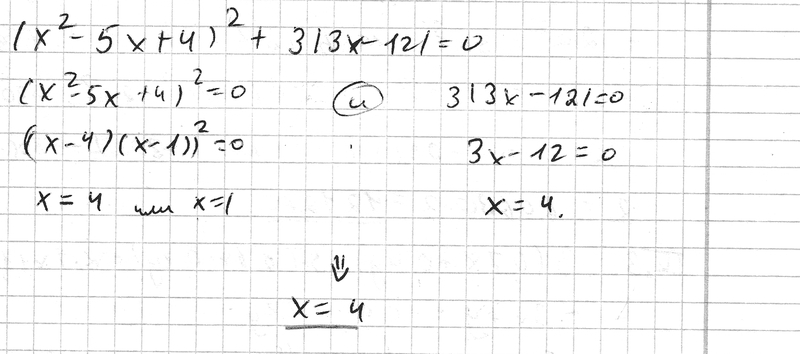 (x²-5x+4)²+3|3x-12|=0
(x²-5x+4)²=0 и 3|3x-12|=0
((x-4)(x-1))²=0 3x-12=0
x=4 или x=1 x=4.
⇓
x=4